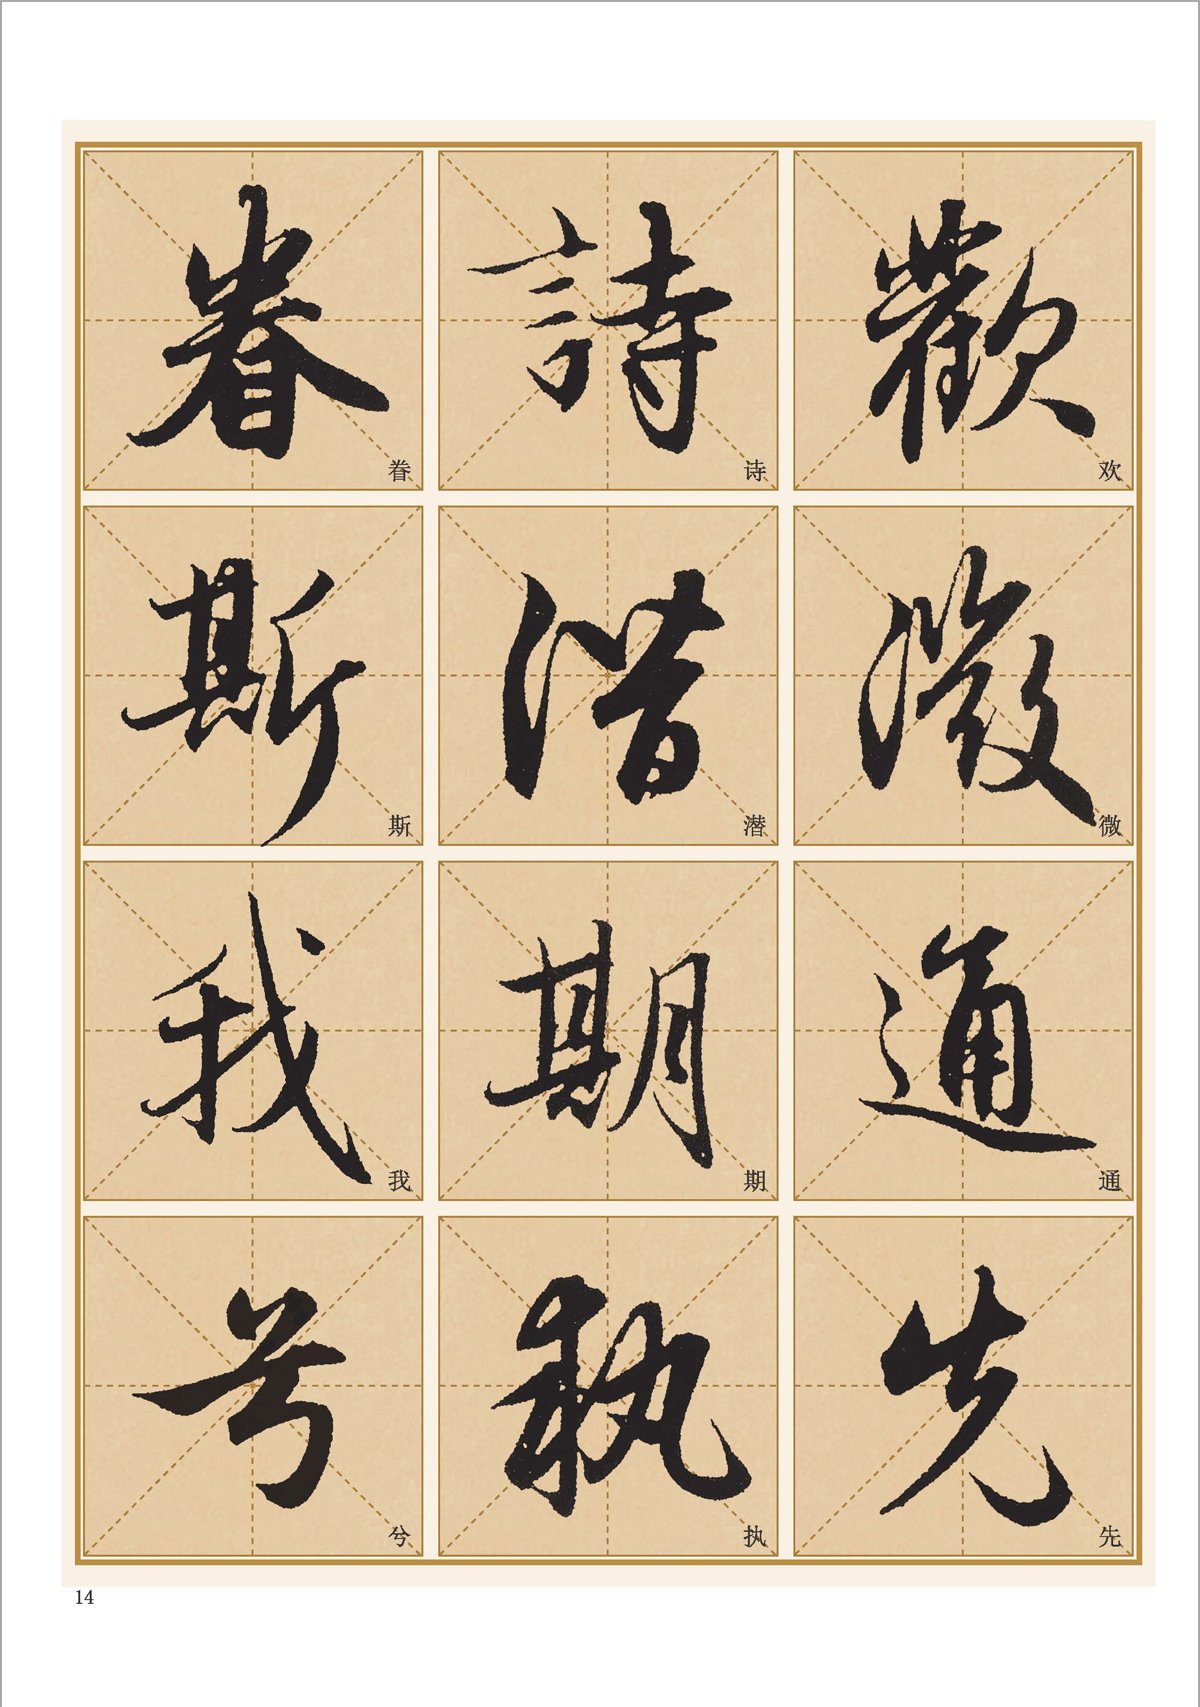 歡微通先
欢微通先
詩潜期執
诗潜期执
眷斯我兮
眷斯我兮
14